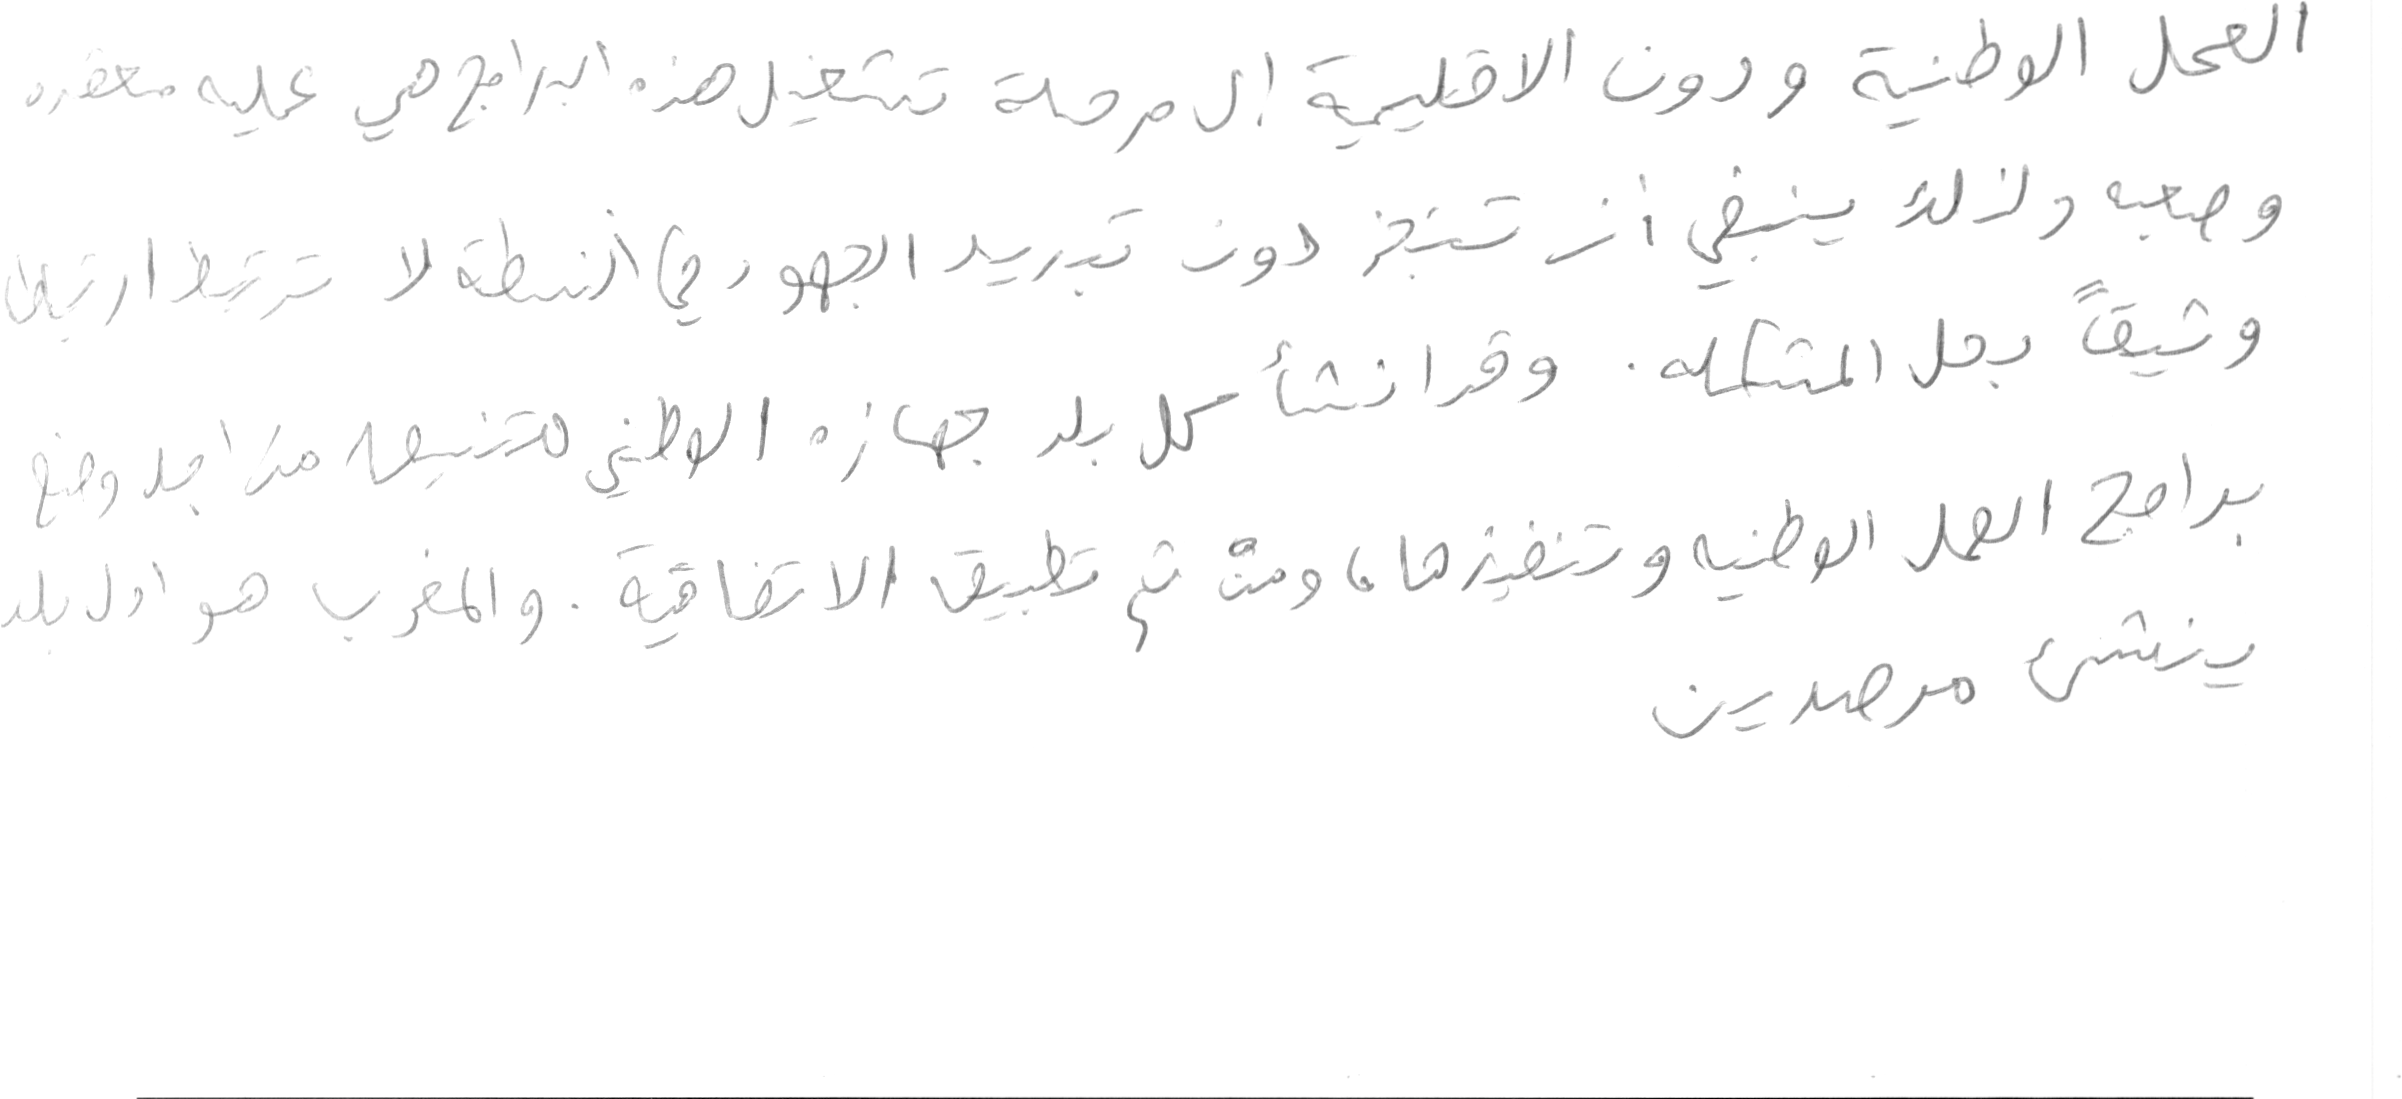 العمل الوطنية ودون الاقليمية إلى مرحلة تشغيل هذه البرامج هي عمليه معقده
وصعبه ولذلك ينبغي أن تنجز دون تبديد الجهود في أنشطة لا ترتبط ارتباطا
وثيقاً بحل المشكله. وقد انشأ كل بلد جهازه الوطني للتنسيق من اجل وضع
برامج العمل الوطنيه وتنفيذها، ومن ثم تطبيق الاتفاقية. والمغرب هو اول بلد
ينشئ مرصدين